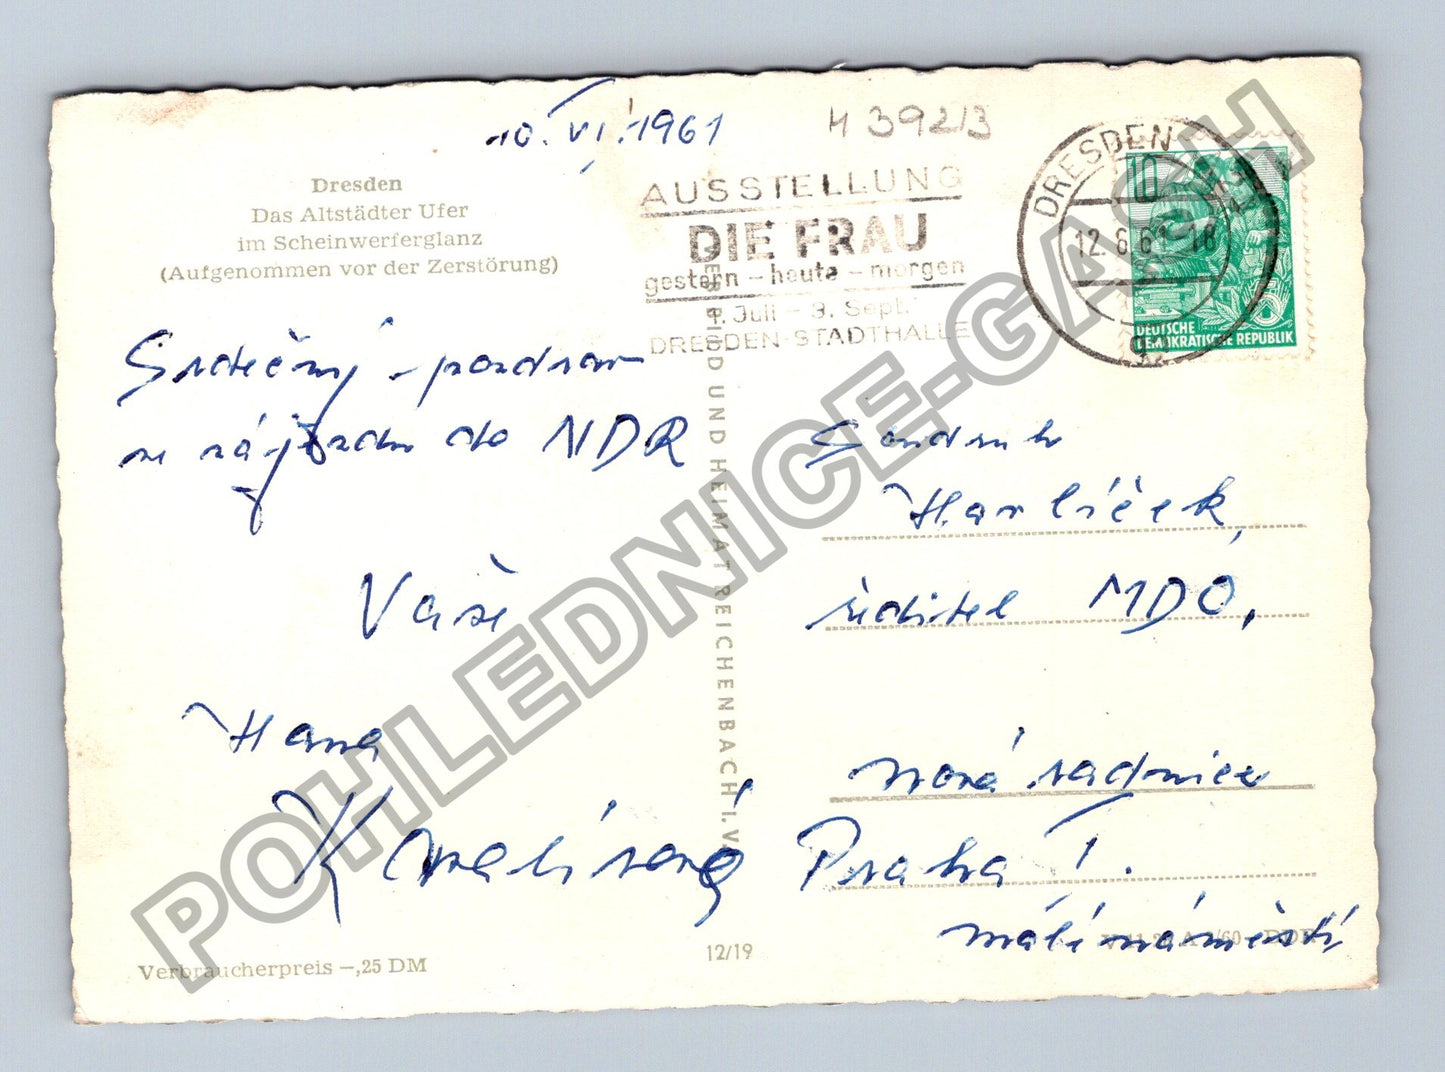 10. VI. 1961
H 392/3
Dresden
Das Altstädter Ufer
im Scheinwerferglanz
(Aufgenommen vor der Zerstörung)
AUSSTELLUNG
DIE FRAU
gestern – heute – morgen
1. Juli – 3. Sept.
DRESDEN-STADTHALLE
DRESDEN
12.6.61 - 18
10
DEUTSCHE
DEMOKRATISCHE REPUBLIK
Srdečný pozdrav
ze zájezdu do NDR
Vaše
Hana
Soudruh
Havlíček,
ředitel MDO,
Nová radnice
Praha I.
malé náměstí
BILD UND HEIMAT REICHENBACH I. V.
Verbraucherpreis –,25 DM
12/19
POHLEDNICE-GASH